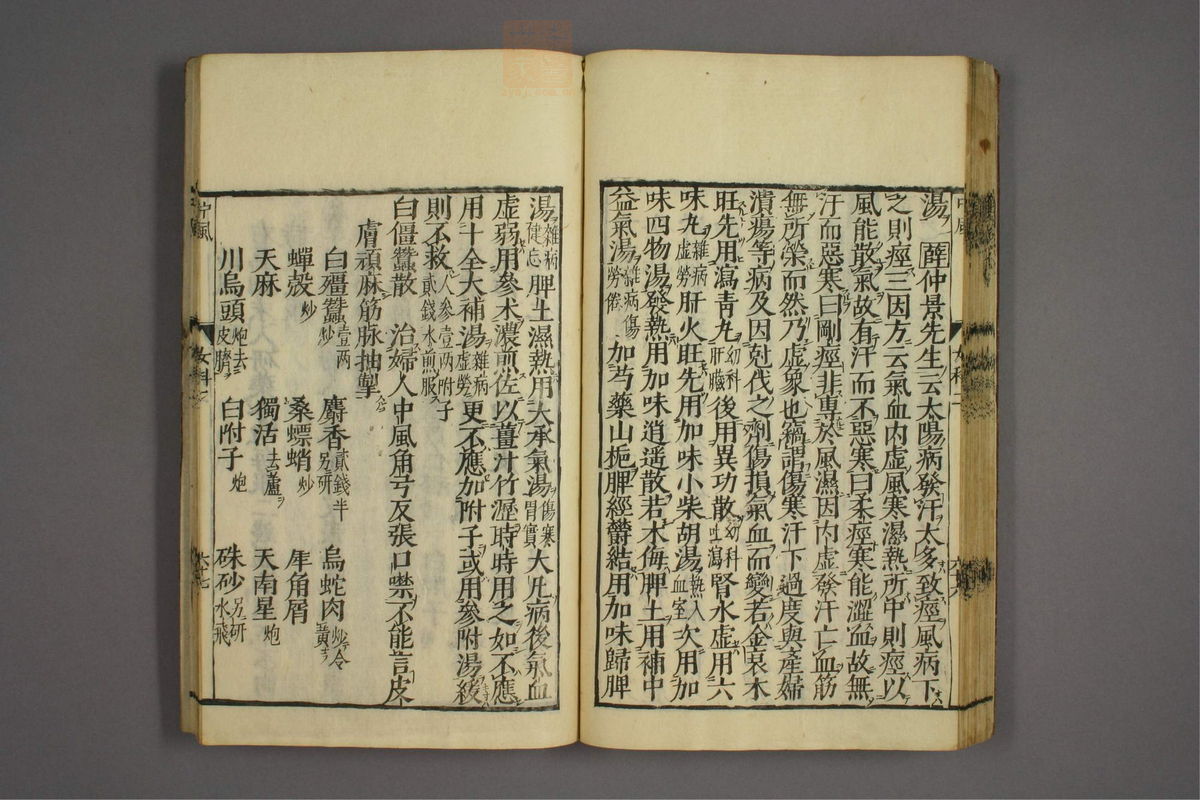 湯 薛仲景先生云太陽病發汗太多致痙風病下
之則痙三因方云氣血内虛風寒濕熱所中則痙以
風能散氣故有汗而不惡寒曰柔痙寒能澀血故無
汗而惡寒曰剛痙非專於風濕因内虛發汗亡血筋
無所榮而然乃虛象也竊謂傷寒汗下過度與產婦
潰瘍等病及因尅伐之劑傷損氣血而變若金衰木
旺先用瀉青丸肝臟幼科後用異功散吐瀉幼科腎水虛用六
味丸雜病虛勞肝火旺先用加味小柴胡湯熱入血室次用加
味四物湯發熱用加味逍遥散若木侮脾土用補中
益氣湯雜病勞倦傷加芍藥山梔脾經欝結用加味歸脾
湯雜病健忘脾土濕熱用大承氣湯傷寒胃實大凡病後氣血
虛弱用參朮濃煎佐以薑汁竹瀝時時用之如不應
用十全大補湯雜病虛勞更不應加附子或用參附湯緩
則不救人參壹兩附子貳錢水煎服
白僵蠶散 治婦人中風角弓反張口噤不能言皮
膚頑麻筋脉抽掣
白殭蠶炒壹兩 麝香貳錢半另研 烏蛇肉炒令黃
蟬殼炒 桑螵蛸炒 犀角屑
天麻 獨活去蘆 天南星炮
川烏頭炮去皮臍 白附子炮 硃砂另研水飛
中風 女科二 六七